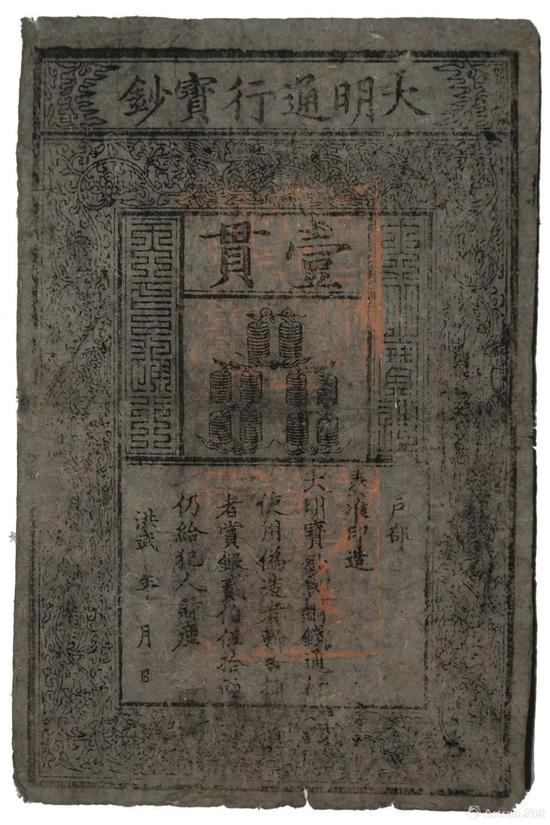 大明通行寶鈔
壹貫
戶部
奏准印造
大明寶鈔與銅錢通行
使用偽造者斬告捕
者賞銀貳伯伍拾兩
仍給犯人財產
洪武 年 月 日
Artron.Net